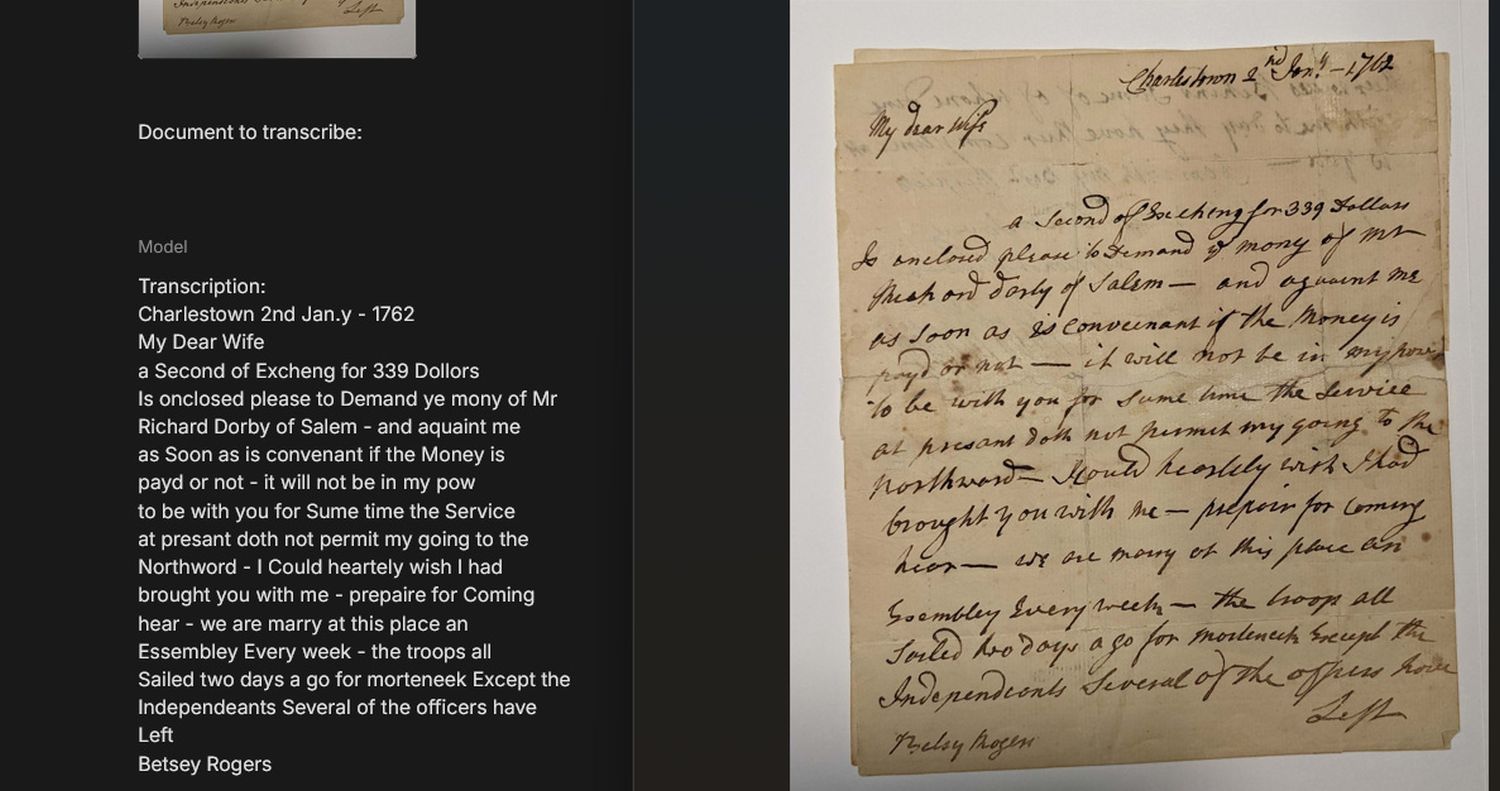 Document to transcribe:
Model
Transcription:
Charlestown 2nd Jan.y - 1762
My Dear Wife
a Second of Excheng for 339 Dollors
Is onclosed please to Demand ye mony of Mr
Richard Dorby of Salem - and aquaint me
as Soon as is convenant if the Money is
payd or not - it will not be in my pow
to be with you for Sume time the Service
at presant doth not permit my going to the
Northword - I Could heartely wish I had
brought you with me - prepaire for Coming
hear - we are marry at this place an
Essembley Every week - the troops all
Sailed two days a go for morteneek Except the
Independeants Several of the officers have
Left
Betsey Rogers
Charlestown 2nd Jan.y - 1762
My dear Wife
a Second of Excheng for 339 Dollars
Is enclosed please to Demand ye mony of Mr
Richard darby of Salem - and aquaint me
as Soon as is conveenant if the Money is
payd or not - it will not be in my pow
to be with you for Sume time the Service
at presant doth not permit my going to the
Northward - I Could heartely wish I had
brought you with me - prepair for Coming
hear - we are marry at this place an
Essembley Every week - the troops all
Sailed two days a go for morteneek Except the
Independeants Several of the officers have
Left
Betsy Rogers